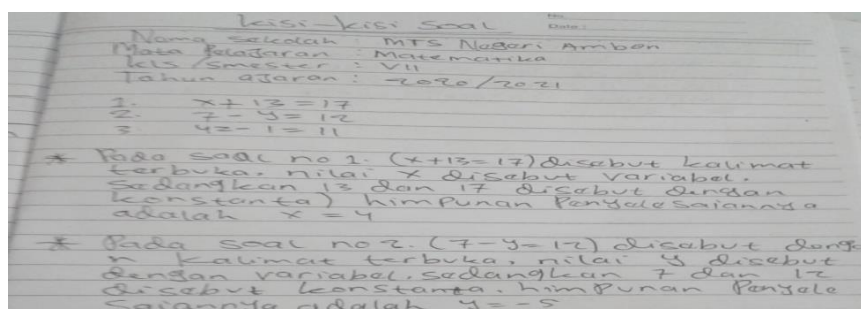 kisi-kisi soal
No
Date:
Nama sekolah : MTS Negeri Ambon
Mata Pelajaran : Matematika
kls/smester : VII
Tahun ajaran : 2020/2021
1. x + 13 = 17
2. 7 - y = 12
3 4z - 1 = 11
* Pada soal no 1. (x+13=17) disebut kalimat
terbuka. nilai x disebut variabel.
sedangkan 13 dan 17 disebut dengan
konstanta) himpunan Penyelesaiannya
adalah x = 4
* Pada soal no 2. (7-y=12) disebut denga
n kalimat terbuka, nilai y disebut
dengan variabel. sedangkan 7 dan 12
disebut konstanta. himpunan Penyele
saiannya adalah y = -5